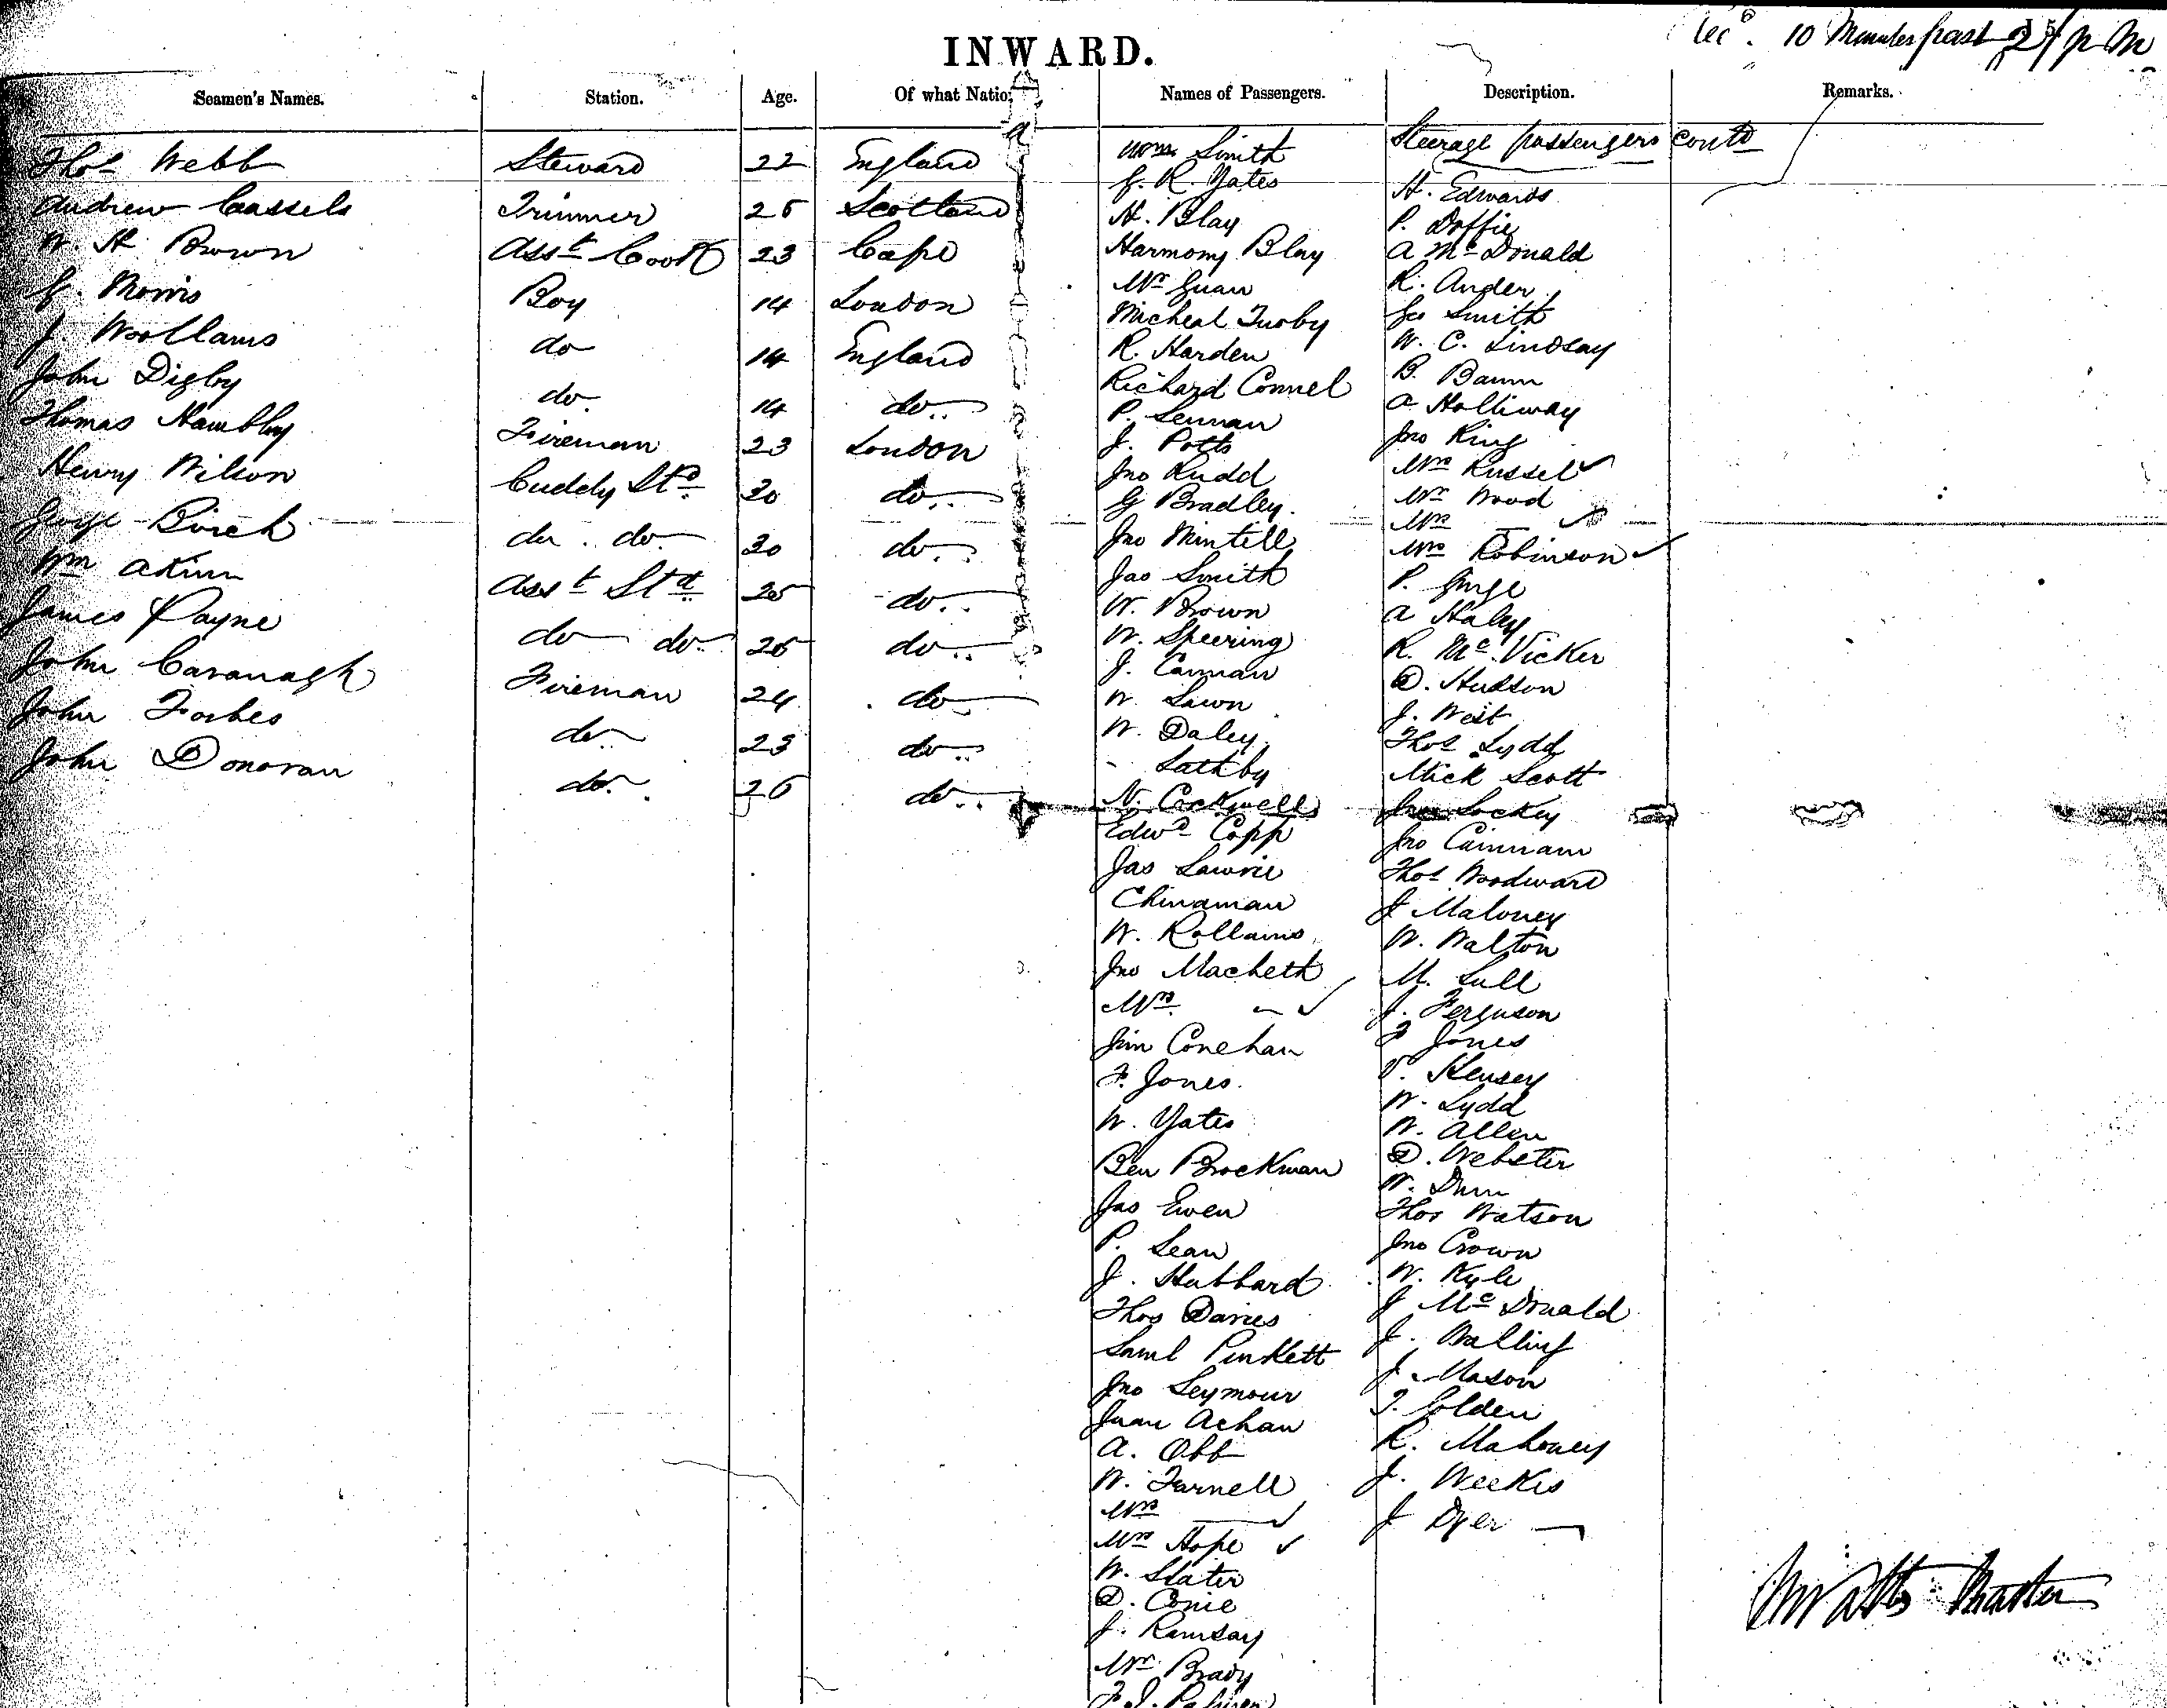 10 Minutes past 2 / p M
INWARD.
Seamen's Names. Station. Age. Of what Natio Names of Passengers. Description. Remarks.
Thos Webb Steward 22 England
Andrew Cassels Trimmer 25 Scotland
W. H. Brown Asst Cook 23 Cape
G. Morris Boy 14 London
J. Woollams do 14 England
John Digby do. 14 do..
Thomas Hambly Fireman 23 London
Henry Wilson Cuddy Std 30 do..
George Birch do. do. 30 do..
Wm Akins Asst Std 25 do..
James Payne do do. 25 do..
John Cavanagh Fireman 24 do
John Forbes do. 23 do..
John Donovan do. 26 do..
Wm Smith
G. R. Yates
H. Blay
Harmony Blay
Mr Guan
Micheal Turby
R. Harden
Richard Connel
P. Lennan
J. Potts
Jno Rudd
G Bradley.
Jno Mintell
Jas Smith
W. Brown
W. Speering
J. Cannan
W. Lawn
W. Daley
Lathby
N. Cockwell
Edwd Copp
Jas Lawrie
Chinaman
W. Rollams
Jno Macheth
Mrs —
Jim Conehan
F. Jones.
W. Yates
Ben Brockman
Jas Ewen
P. Lean
J. Hubbard
Thos Davies
Saml Pinkett
Jno Seymour
Juan Achan
A. Obb
W. Farnell
Mrs —
Mrs Hope
W. Slater
D. Conie
J. Ramsay
Mr Brady
F. J. Palmer
Steerage passengers contd
H. Edwards
P. Doffie
A McDonald
R. Ander
Geo Smith
W. C. Lindsay
B. Baum
A Holliway
Jno King
Mrs Russel
Mr Wood
Mrs —
Mrs Robinson
P. Gurge
A Haley
R. McVicker
D. Hudson
J. West
Thos Lydd
Mick Scott
Jno Lockey
Jno Cainnam
Thos Woodward
J Maloney
W. Walton
M. Lull
J. Ferguson
F Jones
P. Kensey
W. Lydd
W. Allen
D. Webster
W. Dunn
Thos Watson
Jno Crown
W. Kyle
J McDonald
J. Walling
J. Mason
T. Golden
R. Mahoney
J. Weekes
J Dyer —
Watts Master